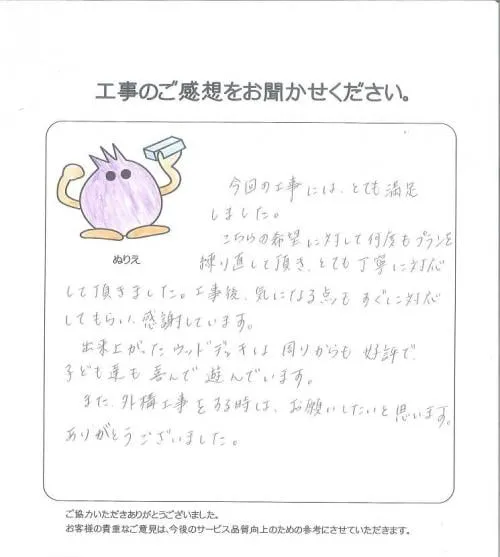 工事のご感想をお聞かせください。
ぬりえ
今回の工事には、とても満足
しました。
こちらの希望に対して何度もプランを
練り直して頂き、とても丁寧に対応
して頂きました。工事後、気になる点もすぐに対応
してもらい、感謝しています。
出来上がったウッドデッキは周りからも好評で、
子ども達も喜んで遊んでいます。
また、外構工事をする時は、お願いしたいと思います。
ありがとうございました。
ご協力いただきありがとうございました。
お客様の貴重なご意見は、今後のサービス品質向上のための参考にさせていただきます。